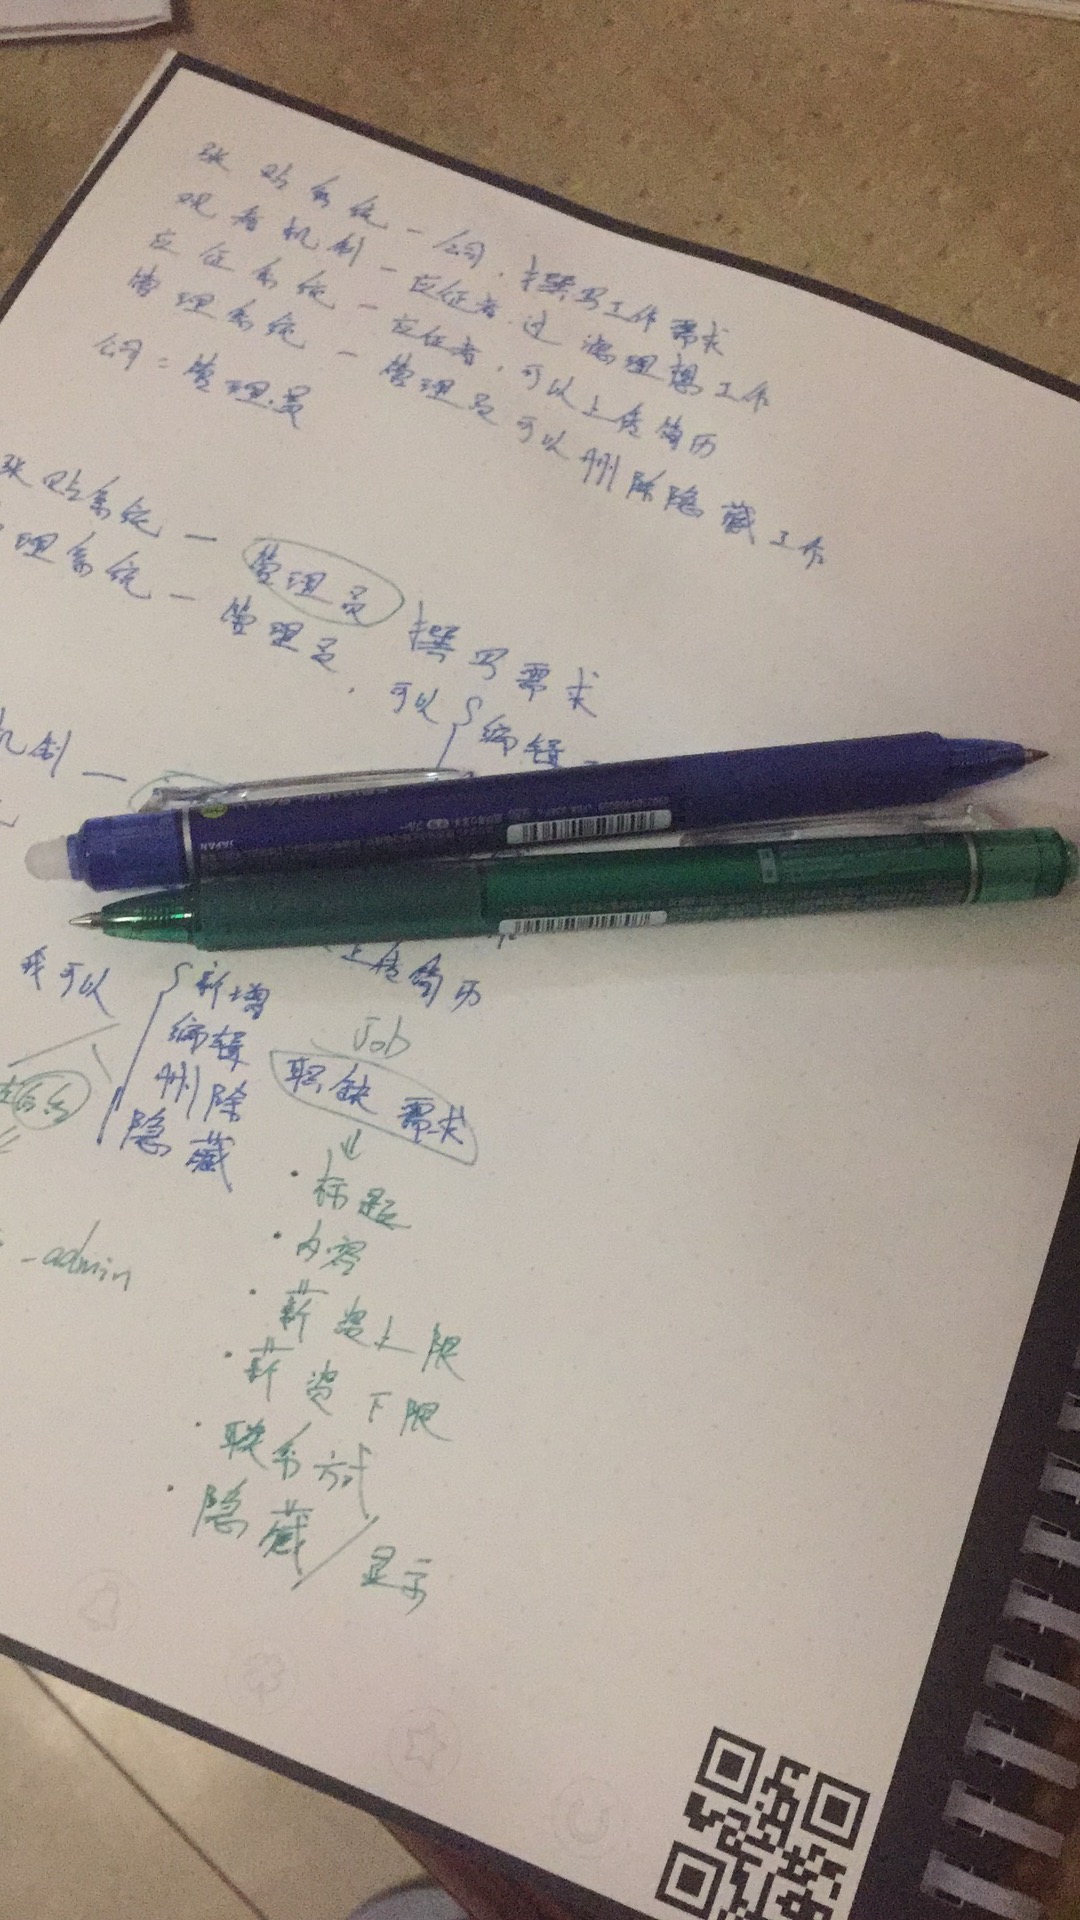 张贴系统 - 公司. 撰写工作需求
观看机制 - 应征者 过滤理想工作
应征系统 - 应征者, 可以上传简历
管理系统 - 管理员可以删除隐藏工作
公司 = 管理员
张贴系统 - 管理员 撰写需求
理系统 - 管理员, 可以 { 编辑
机制 -
JAPAN
上传简历
我可以 { 新增
编辑
删除
隐藏
Job
职缺需求
· 标题
· 内容
· 薪资上限
· 薪资下限
· 联系方式
· 隐藏/显示
- admin